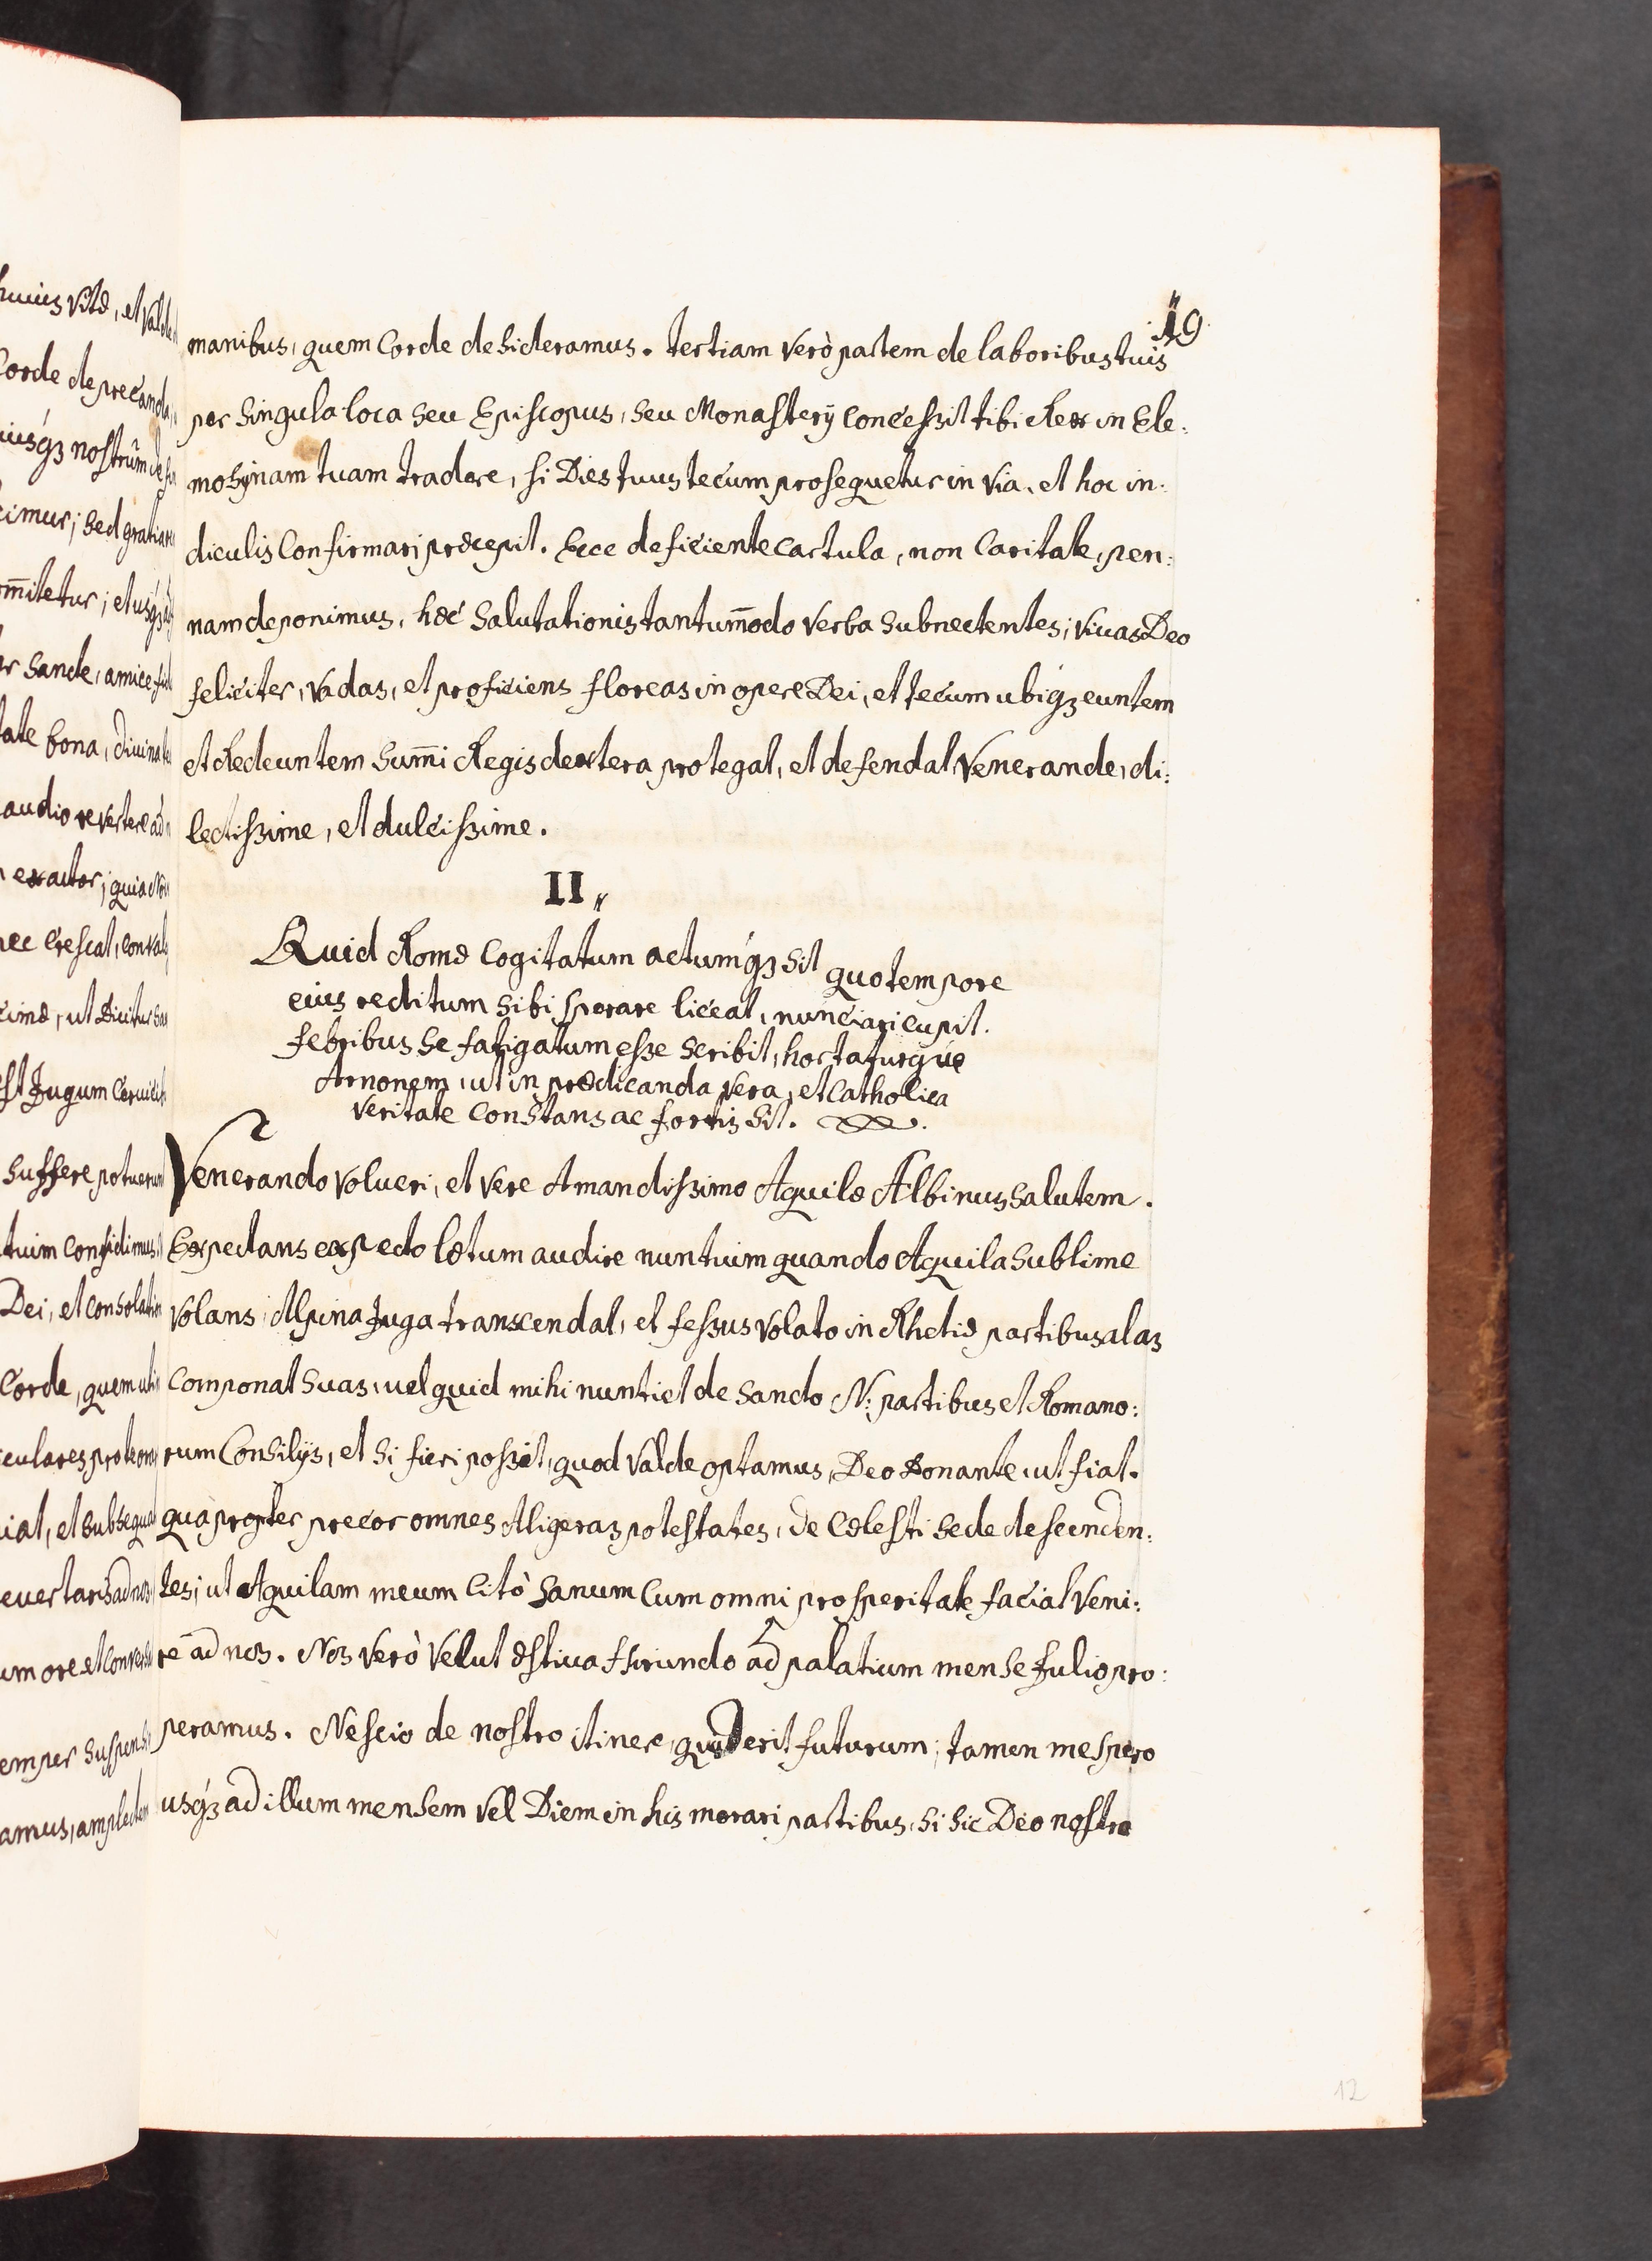 huius vitæ, et valde
corde deprecanda
iusq3 nostrum
cimur; sed gratiar
om̄itetur; et usq3 
r sancte, amice fid
tate bona, divina
audio revertere ad
exactor; quia
nec crescat, conval
cimæ, ut dicitur
st Jugum cervicib
suffere potuerun
tuim considimus
Dei, et consolation
Corde, quem
eculares pro te ora
iat, et subsequa
evertaris ad nos
um ore et
emper suspens
amus, amplecten
19
manibus, quem Corde desideramus. tertiam verò partem de laboribus tuis
per singula loca seu Episcopus, seu Monasterÿ concessit tibi Rex in Ele:
mosÿnam tuam tradere, si Dies tuus tecum prosequetur in via, et hoc in:
diculis Confirmari præcepit. Ecce deficiente cartula, non Caritate, pen:
nam deponimus, hæc salutationis tantum̄odo verba subnectentes; vivas Deo
feliciter, vadas, et proficiens floreas in opere Dei, et tecum ubiq3 euntem
et Redeuntem sum̄i Regis dextera protegat, et defendat, Venerande, di:
lectissime, et dulcissime.
II„
Quid Romæ cogitatum actumq3 sit quo tempore
eius reditum sibi sperare liceat, nunciari cupit.
febribus se fatigatum esse scribit, hortaturque
Arnonem, ut in prædicanda vera, et Catholica
veritate constans ac fortis sit.
Venerando volucri, et vere Amandissimo Aquilæ Albinus salutem.
Expectans expecto lætum audire nuntium quando Aquila sublime
volans Alpina Juga transcendat, et fessus volato in Rhetiæ partibus alas
componat suas, vel quid mihi nuntiet de sancto N: partibus et Romano:
rum Consilijs, et si fieri possit, quod valde optamus, Deo donante, ut fiat.
quapropter precor omnes Aligeras potestates, de Cælesti sede descenden:
tes; ut Aquilam meum Citò sanum Cum omni prosperitate faciat Veni:
re ad nos. Nos verò velut æstiva Hirundo ad palatium mense Julio pro:
peramus. Nescio de nostro itinere, quid erit futurum; tamen me spero
usq3 ad illum mensem vel Diem in his morari partibus, si sic Deo nostro
12